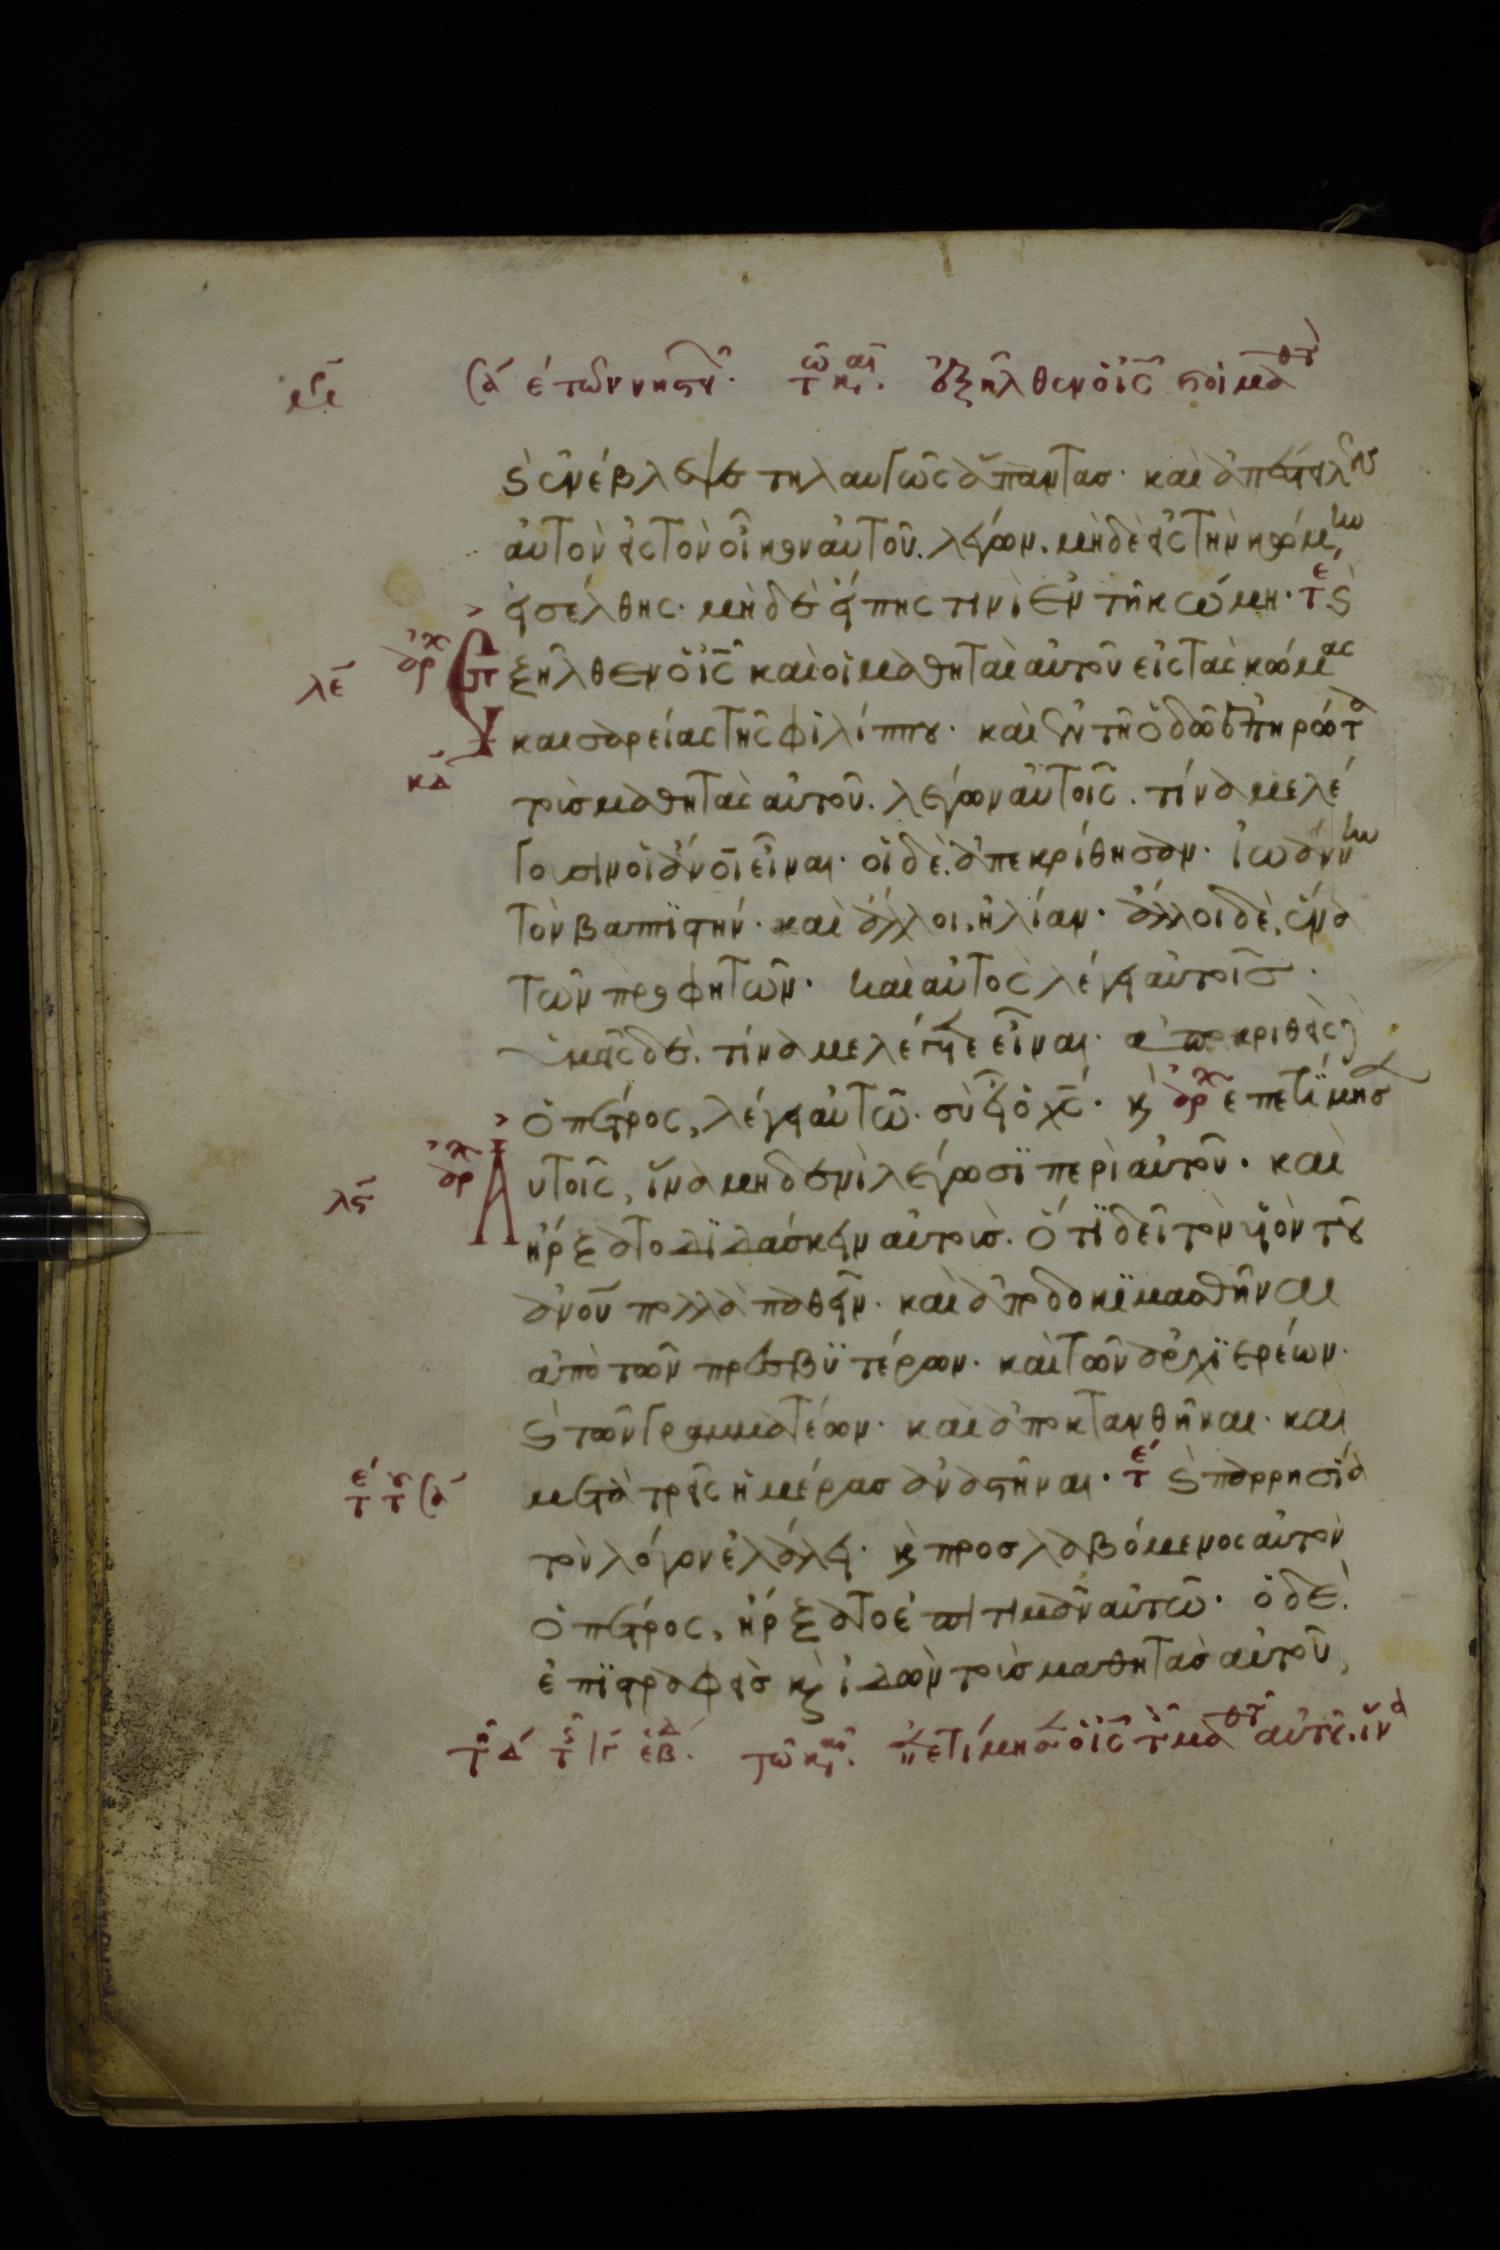 με Σα ε τῶν νηστ. τω και. ἐξῆλθεν ὁ ις ϛ οἱ μαθ
ϛ ἐνέβλεψε τηλαυγῶς ἅπαντας· καὶ ἀπέστειλεν
αὐτὸν εἰς τὸν οἶκον αὐτοῦ. λέγων. μὴ δὲ εἰς τὴν κώμην
εἰσέλθης· μὴ δὲ εἴπης τινὶ ἐν τῆ κώμη· τε ϛ
λε αρχ Ἐξῆλθεν ὁ ις καὶ οἱ μαθηταὶ αὐτοῦ εἰς τὰς κώμας
κδ καισαρείας τῆς φιλίππου· καὶ ἐν τῆ ὁδῶ ἐπηρώτα
τοὺς μαθητὰς αὐτοῦ. λέγων αὐτοῖς. τίνα με λέ
γουσιν οἱ ἄνοι εἶναι· οἱ δὲ ἀπεκρίθησαν· ἰωάννην
τὸν βαπτιστήν· καὶ ἄλλοι, ἠλίαν· ἄλλοι δὲ, ἕνα
τῶν προφητῶν· καὶ αὐτὸς λέγει αὐτοῖς·
ὑμεῖς δὲ. τίνα με λέγετε εἶναι· ἀποκριθεὶς
ὁ πέτρος, λέγει αὐτῶ· σὺ εἶ ὁ χς· κὶ αρχ ἐπετίμησεν
λϛ αρχ Αὐτοῖς, ἵνα μηδενὶ λέγωσι περὶ αὐτοῦ· καὶ
ἤρξατο διδάσκειν αὐτοὺς. ὅτι δεῖ τὸν υἱὸν τοῦ
ἀνου πολλὰ παθεῖν· καὶ ἀποδοκιμασθῆναι
ἀπὸ τῶν πρεσβυτέρων· καὶ τῶν ἀρχιερέων·
ϛ τῶν γραμματέων· καὶ ἀποκτανθῆναι· καὶ
μετὰ τρεῖς ἡμέρας ἀναστῆναι· τε ϛ παρρησία
τὸν λόγον ἐλάλει· κὶ προσλαβόμενος αὐτὸν
ὁ πέτρος, ἤρξατο ἐπιτιμᾶν αὐτῶ· ὁ δὲ.
ἐπιστραφεὶς κὶ ἰδὼν τοὺς μαθητὰς αὐτοῦ,
τῶ και. ἐπετίμησεν ὁ ις τ μαθ αὐτοῦ. ἵνα